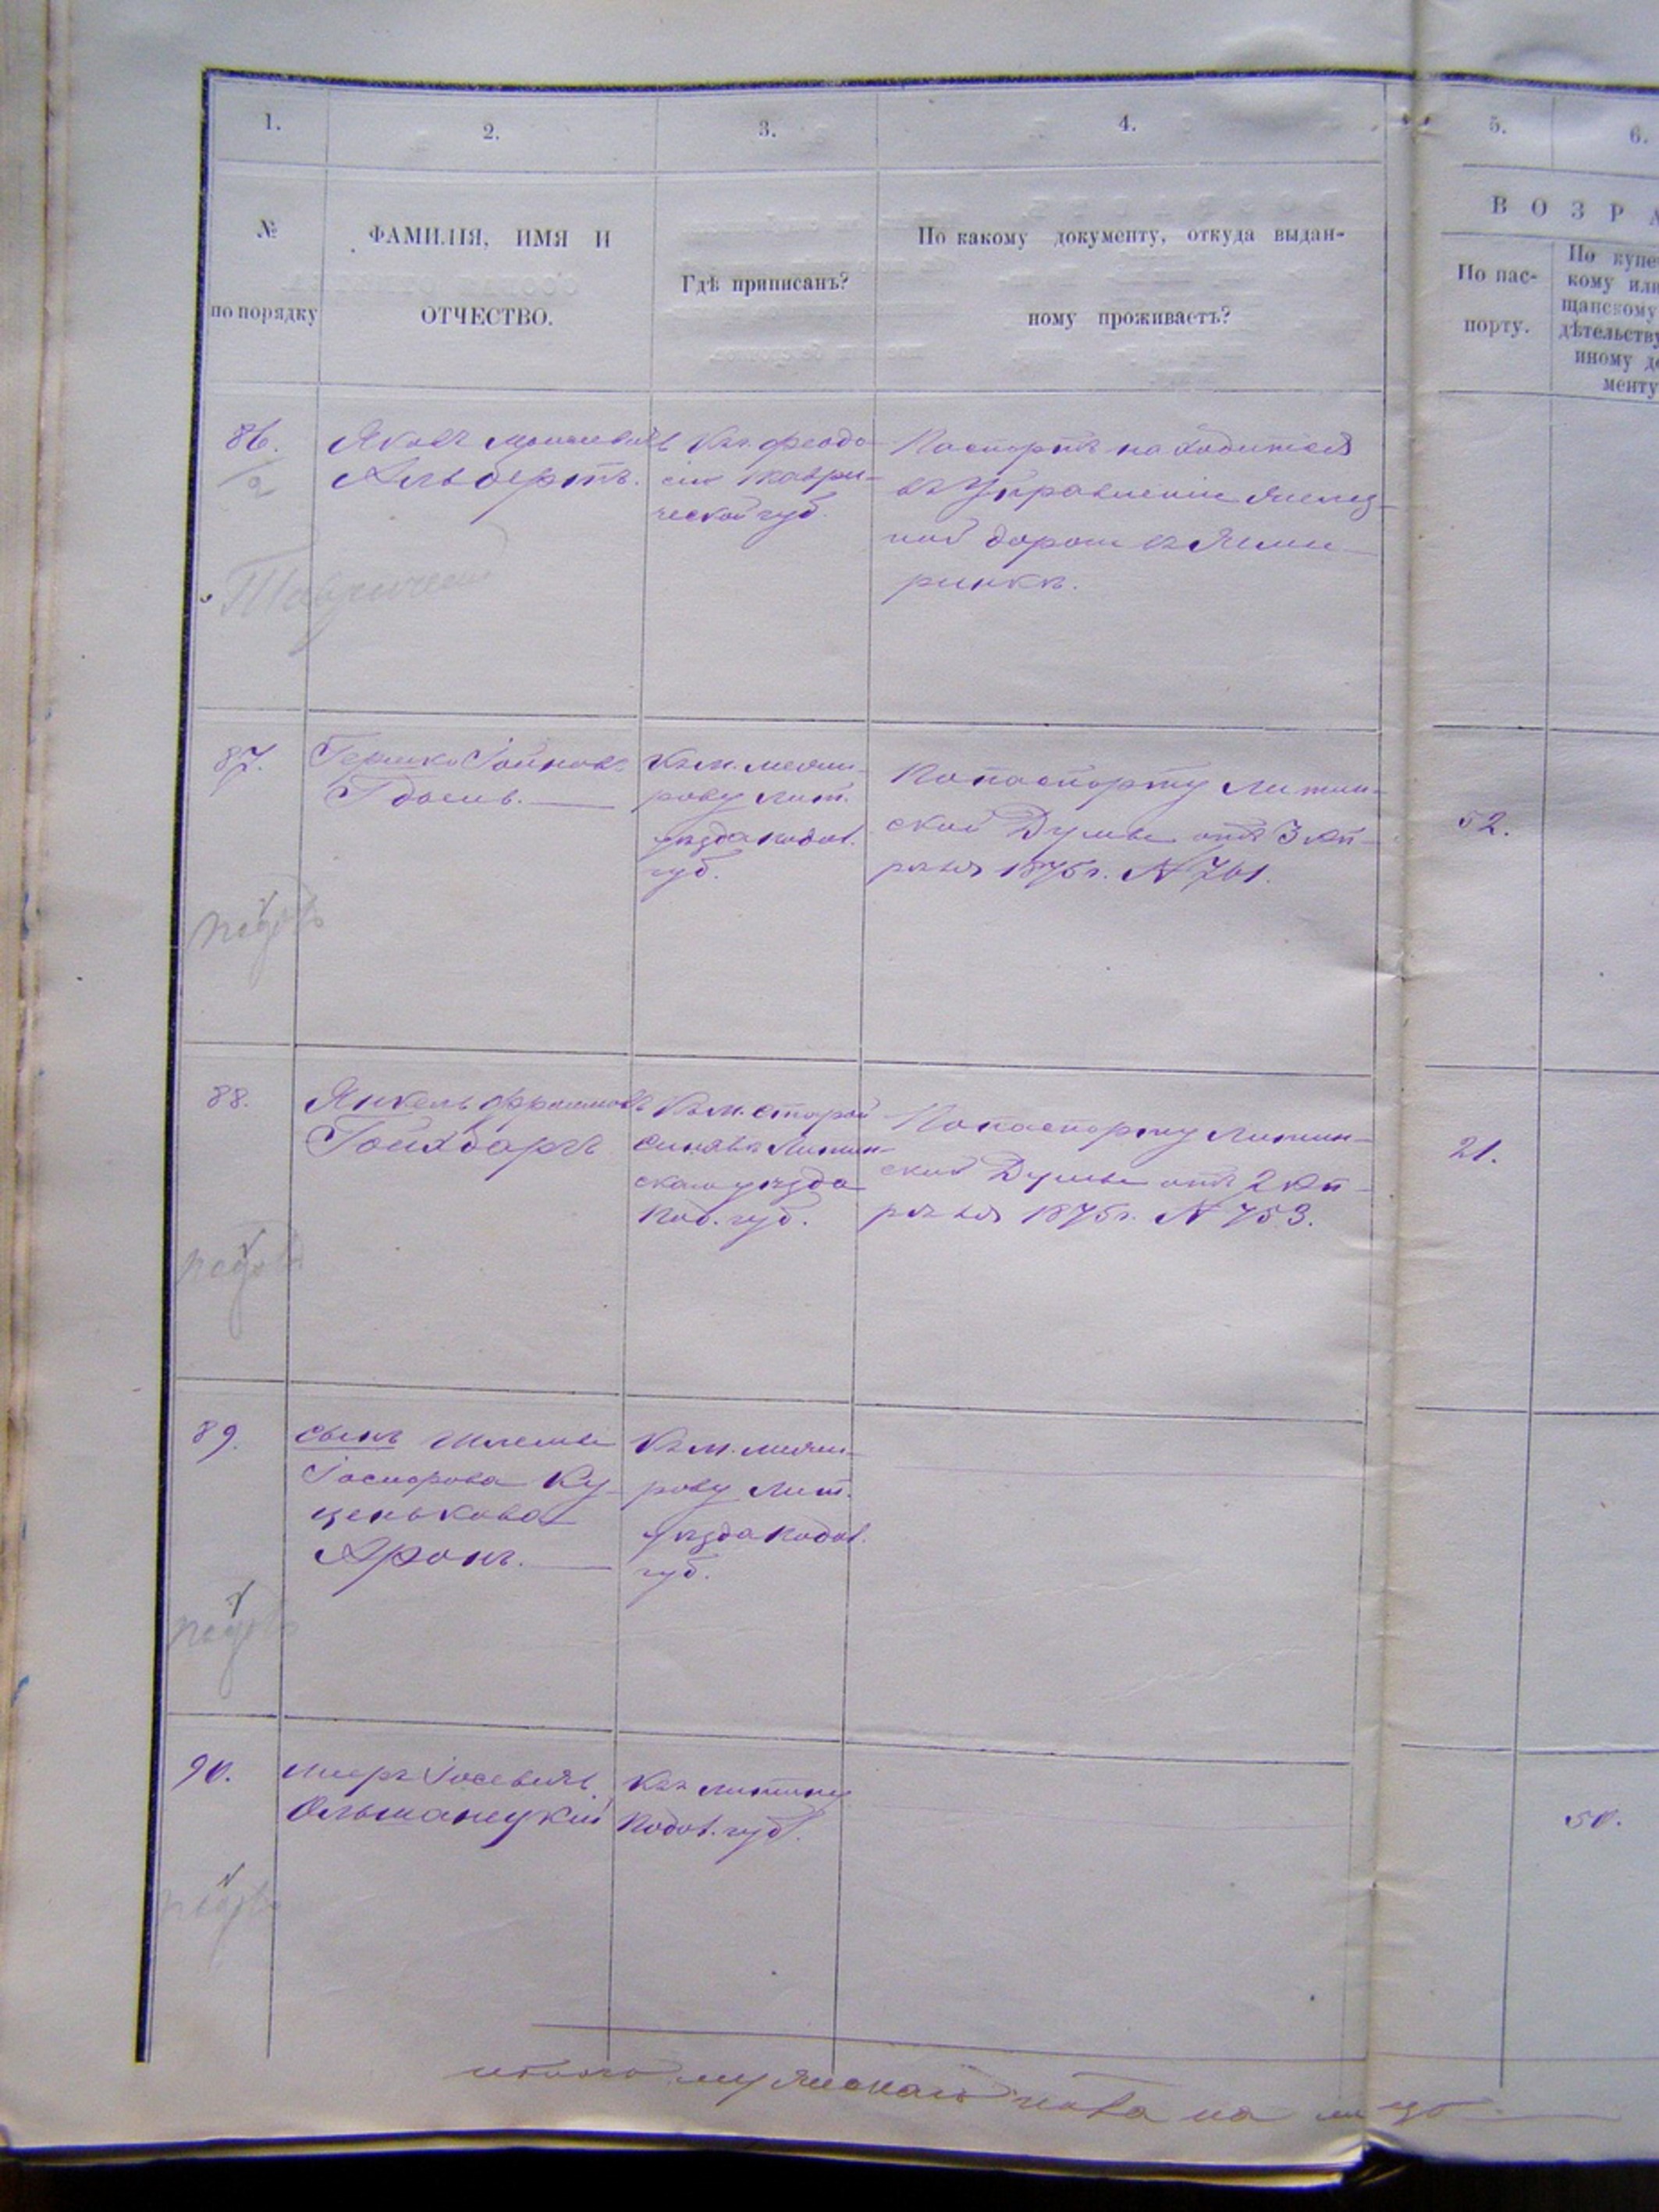 1.
2.
3.
4.
5.
6.
№
по порядку
ФАМИЛІЯ, ИМЯ И
ОТЧЕСТВО.
Гдѣ приписанъ?
По какому документу, откуда выдан-
ному проживаетъ?
ВОЗРА
По пас-
порту.
По купе
кому или
щанскому
дѣтельству
иному до
менту
86.
2
Яковъ Мошкевичъ
Альбертъ.
Къ г. Феодо-
сіи Таври-
ческой губ.
Паспортъ находится
въ Управленіи Желѣз-
ной дороги въ Жме-
ринкѣ.
Тавричес
87.
Гершко Іойнов.
Гдаль.
Къ м. Межи-
рову Лит.
уѣзда Подол.
губ.
По паспорту Литин-
ской Думы отъ 3 Ап-
рѣля 1875 г. № 761.
52.
88.
Янкель Фроимовъ
Гойхбаргъ
Къ м. Старой
Синявѣ Литин-
скаго уѣзда
Под. губ.
По паспорту Литин-
ской Думы отъ 2 Ап-
рѣля 1875 г. № 753.
21.
89.
сынъ Шлемы
Іосифова Ку-
ценькова
Аронъ.
Къ м. Межи-
рову Лит.
уѣзда Подол.
губ.
90.
Мееръ Іосевичъ
Ольшанецкій
Къ г. Литину
Подол. губ.
50.
итого мужескаго пола на лицо